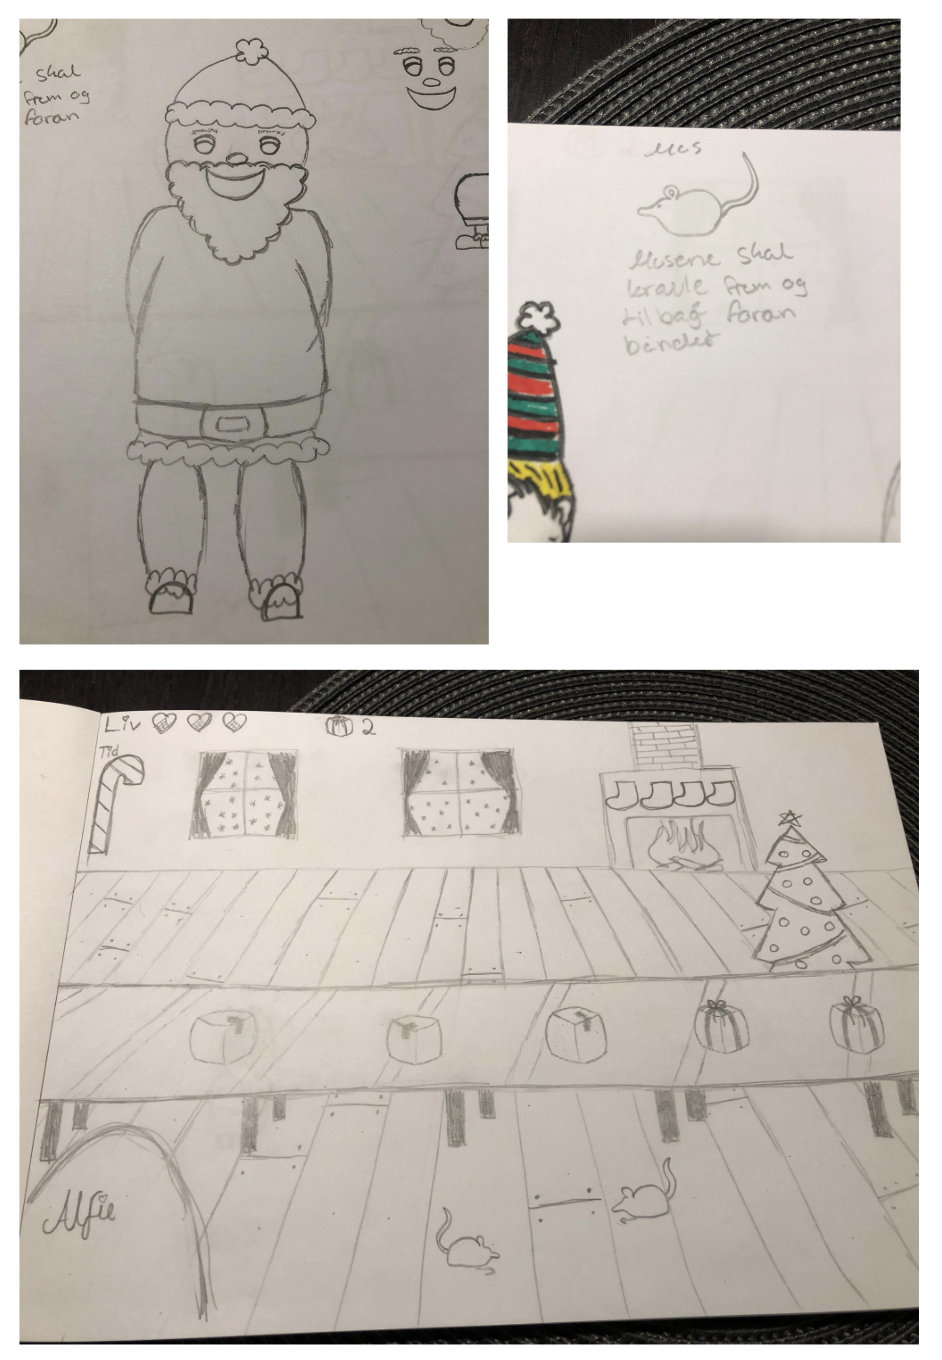 skal
frem og
foran
Mus
Musene skal
kravle frem og
tilbag foran
båndet
Liv
2
Tid
Alfie